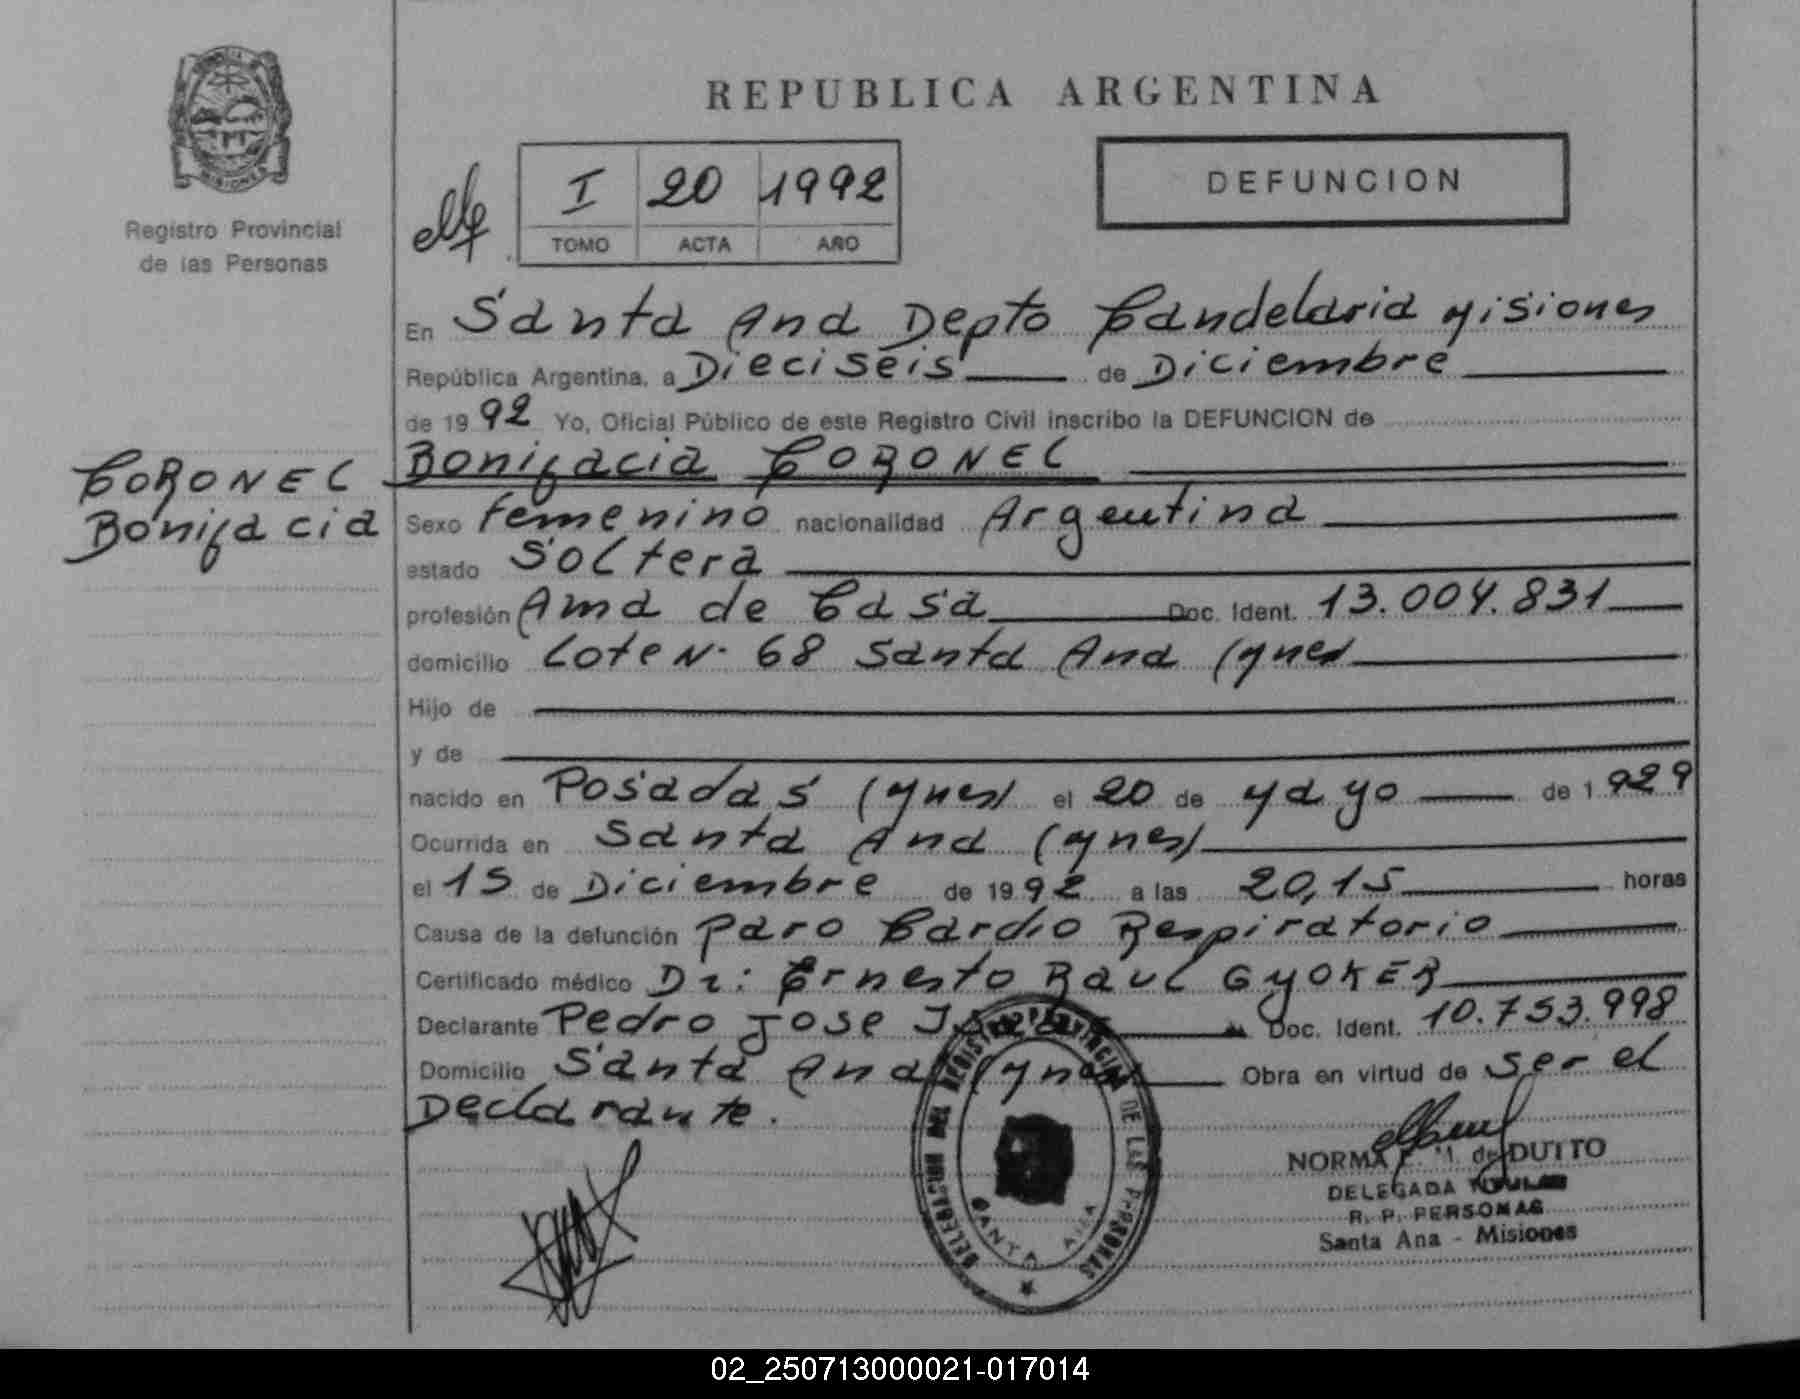 REPUBLICA ARGENTINA
PROVINCIA DE
MISIONES
Registro Provincial
de las Personas
I 20 1992
TOMO ACTA AÑO
DEFUNCION
En Santa Ana Depto Candelaria Misiones
República Argentina, a Dieciseis de Diciembre
de 1992 Yo, Oficial Público de este Registro Civil inscribo la DEFUNCION de
CORONEL
Bonifacia
Bonifacia CORONEL
Sexo Femenino nacionalidad Argentina
estado Soltera
profesión Ama de Casa Doc. Ident. 13.004.831
domicilio Lote N. 68 Santa Ana (Mnes)
Hijo de
y de
nacido en Posadas (Mnes) el 20 de Mayo de 1929
Ocurrida en Santa Ana (Mnes)
el 15 de Diciembre de 1992 a las 20,15 horas
Causa de la defunción Paro Cardio Respiratorio
Certificado médico Dr: Ernesto Raul GYOKER
Declarante Pedro Jose Doc. Ident. 10.753.998
Domicilio Santa Ana (Mnes) Obra en virtud de ser el
Declarante.
DELEGACION DEL REGISTRO PROVINCIAL DE LAS PERSONAS
SANTA ANA
NORMA M. de DUTTO
DELEGADA TITULAR
R. P. PERSONAS
Santa Ana - Misiones
02_250713000021-017014